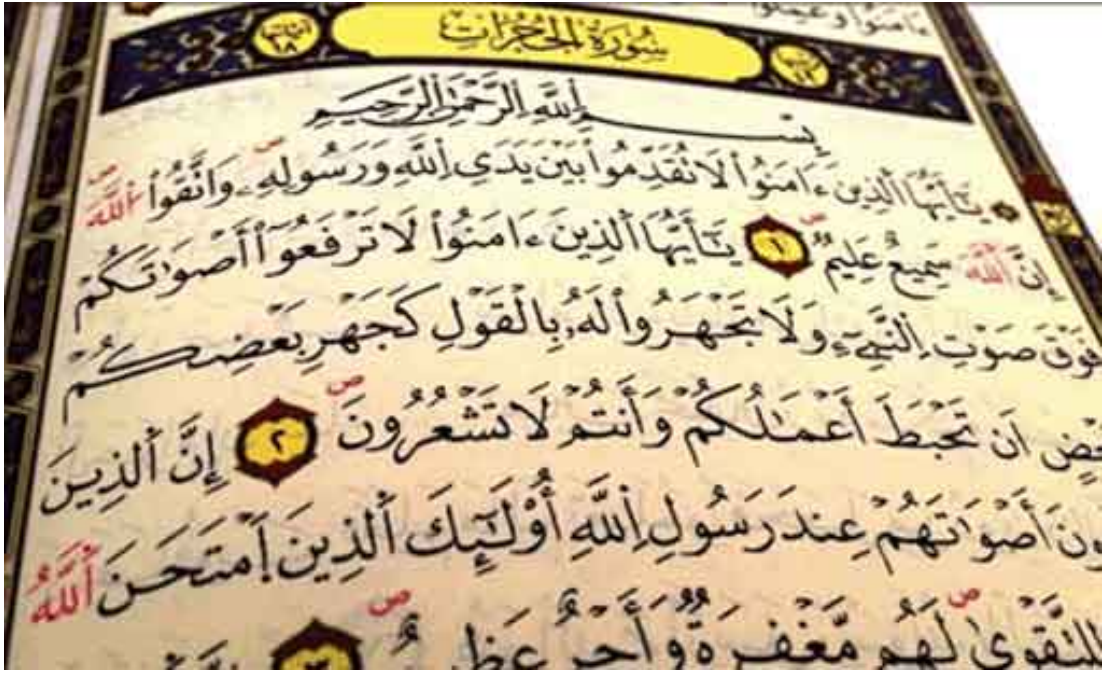 ءامنوا وعملوا
سُورَةُ الحُجُرَاتِ
ءاياتها ١٨
بِسْمِ اِللَّهِ اِلرَّحْمَٰنِ اِلرَّحِيمِ
يَٰٓأَيُّهَا اَلذِينَ ءَامَنُواْ لَا تُقَدِّمُواْ بَيْنَ يَدَيِ اِللَّهِ وَرَسُولِهِۦ وَاتَّقُواْ اُللَّهَ
إِنَّ اَللَّهَ سَمِيعٌ عَلِيمٌ ١ يَٰٓأَيُّهَا اَلذِينَ ءَامَنُواْ لَا تَرْفَعُوٓاْ أَصْوَٰتَكُمْ
فَوْقَ صَوْتِ اِلنَّبِيٓءِ وَلَا تَجْهَرُواْ لَهُۥ بِالْقَوْلِ كَجَهْرِ بَعْضِكُمْ
أَن تَحْبَطَ أَعْمَٰلُكُمْ وَأَنتُمْ لَا تَشْعُرُونَ ٢ إِنَّ اَلذِينَ
أَصْوَٰتَهُمْ عِندَ رَسُولِ اِللَّهِ أُوْلَٰٓئِكَ اَلذِينَ اَمْتَحَنَ اَللَّهُ
لِلتَّقْوَىٰ لَهُم مَّغْفِرَةٌ وَأَجْرٌ عَظِيمٌ ٣